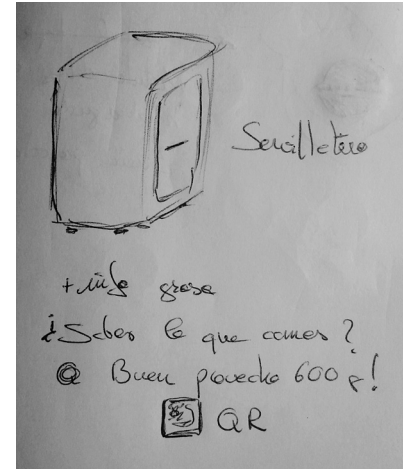 Servilletero
+ info grasa
¿Sabes lo que comes?
@ Buen provecho 600 g!
QR